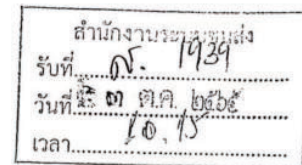 สำนักงานระบบขนส่ง
รับที่ ส. 1939
วันที่ ๓ ต.ค. ๒๕๖๕
เวลา 10.15